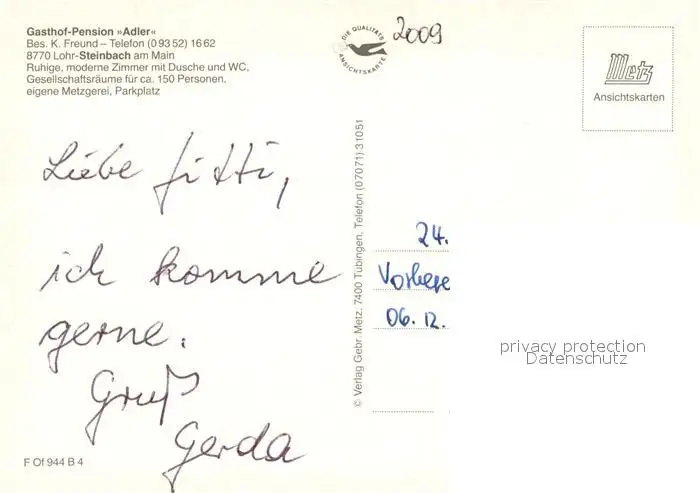 Gasthof-Pension »Adler«
Bes. K. Freund – Telefon (0 93 52) 16 62
8770 Lohr-Steinbach am Main
Ruhige, moderne Zimmer mit Dusche und WC,
Gesellschaftsräume für ca. 150 Personen,
eigene Metzgerei, Parkplatz
DIE QUALITÄTS
ANSICHTSKARTE
2009
Metz
Ansichtskarten
Liebe Jitti,
ich komme
gerne.
Gruß
Gerda
© Verlag Gebr. Metz, 7400 Tübingen, Telefon (07071) 31051
24.
06. 12.
privacy protection
Datenschutz
F Of 944 B 4